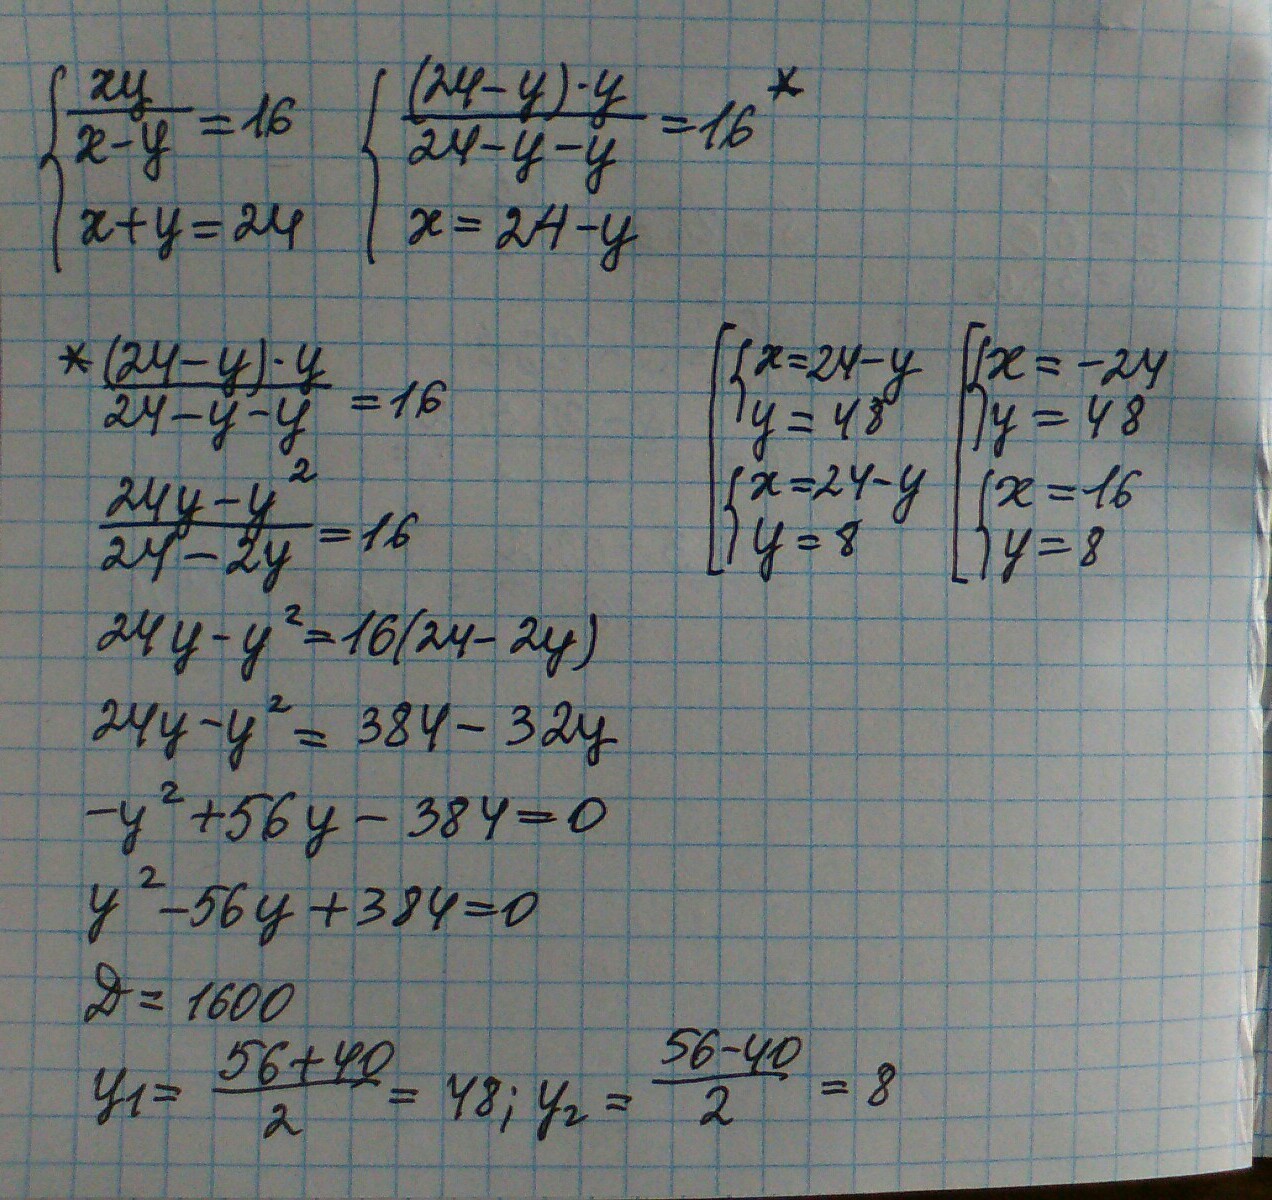 { xy/(x-y) = 16    { (24-y)·y/(24-y-y) = 16 *
{ x+y = 24    { x = 24-y
* (24-y)·y/(24-y-y) = 16
(24y-y²)/(24-2y) = 16
24y-y² = 16(24-2y)
24y-y² = 384-32y
-y²+56y-384=0
y²-56y+384=0
D = 1600
y₁ = (56+40)/2 = 48; y₂ = (56-40)/2 = 8
[ { x=24-y    [ { x = -24
{ y = 48    { y = 48
{ x=24-y    { x = 16
{ y = 8    { y = 8